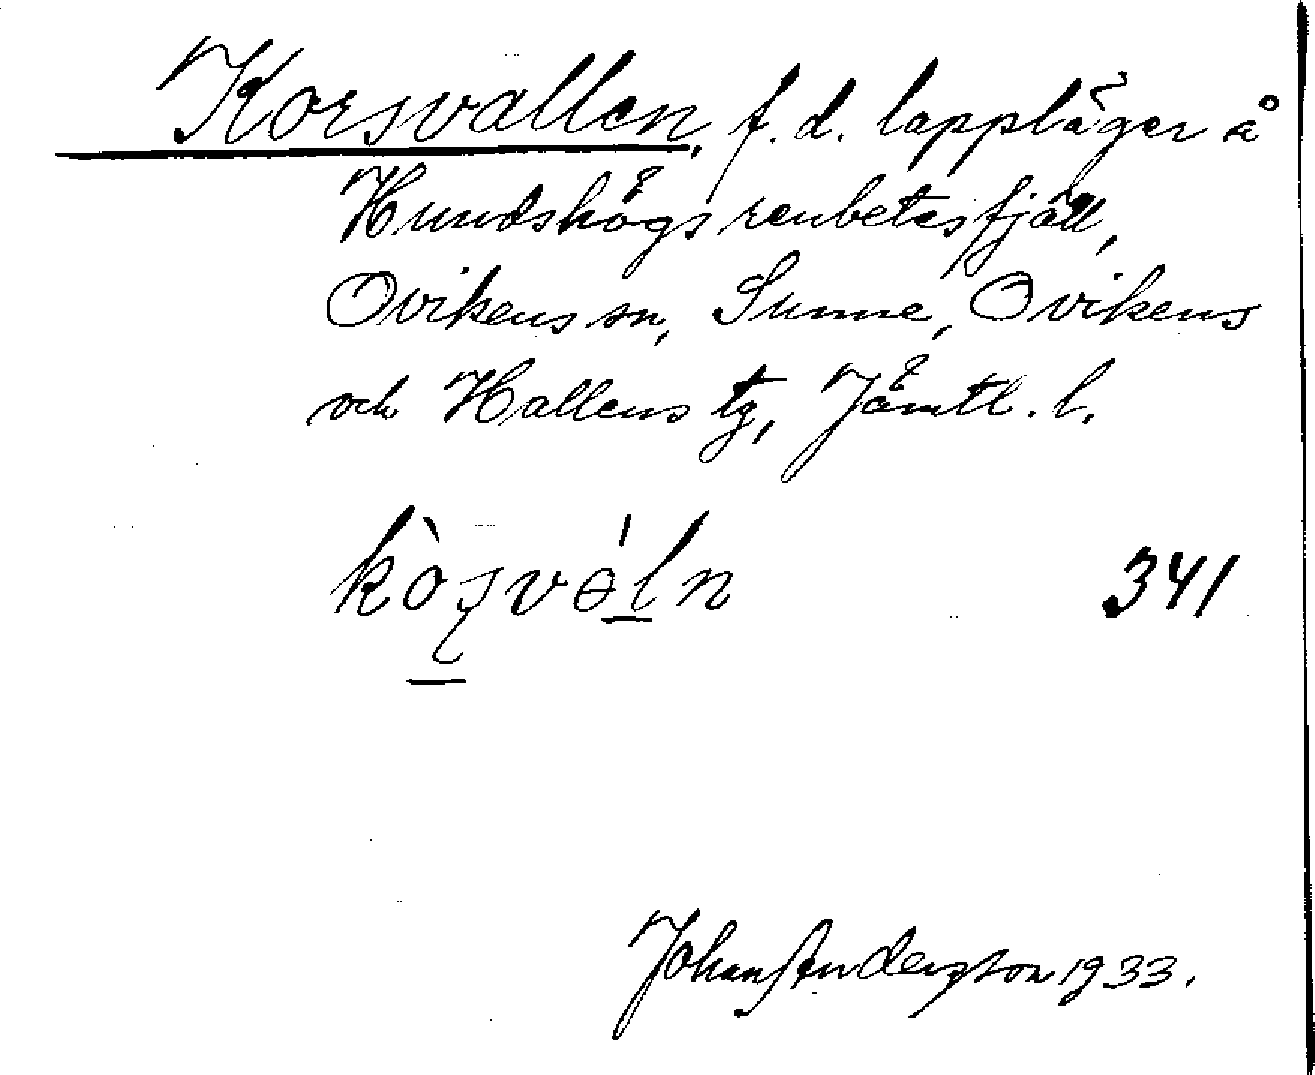 Korsvallen, f. d. lappläger å
Hundshögs renbetesfjäll,
Ovikens sn, Sunne, Ovikens
och Hallens tg, Jämtl. l.
341
Johan Andersson 1933.